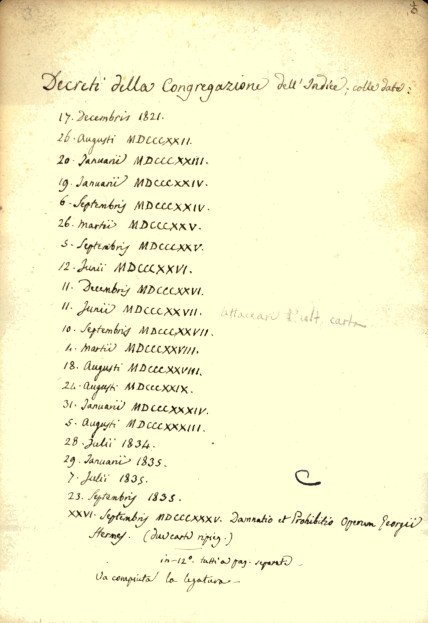 3
Decreti della Congregazione dell'Indice; colle date:
17. Decembris 1821.
26. Augusti MDCCCXXII.
20. Januarii MDCCCXXIII.
19. Januarii MDCCCXXIV.
6. Septembris MDCCCXXIV.
26. Martii MDCCCXXV.
5. Septembris MDCCCXXV.
12. Junii MDCCCXXVI.
11. Decembris MDCCCXXVI.
11. Junii MDCCCXXVII. attaccare carta
10. Septembris MDCCCXXVII.
4. Martii MDCCCXXVIII.
18. Augusti MDCCCXXVIII.
24. Augusti MDCCCXXIX.
31. Januarii MDCCCXXXIV.
5. Augusti MDCCCXXXIII.
28. Julii 1834.
29. Januarii 1835.
7. Julii 1835.
23. Septembris 1835.
XXVI. Septembris MDCCCXXXV. Damnatio et Prohibitio Operum Georgii
Hermes. (due carte ripieg.)
in-12°. tutti a pag. separate
Va compiuta la legatura